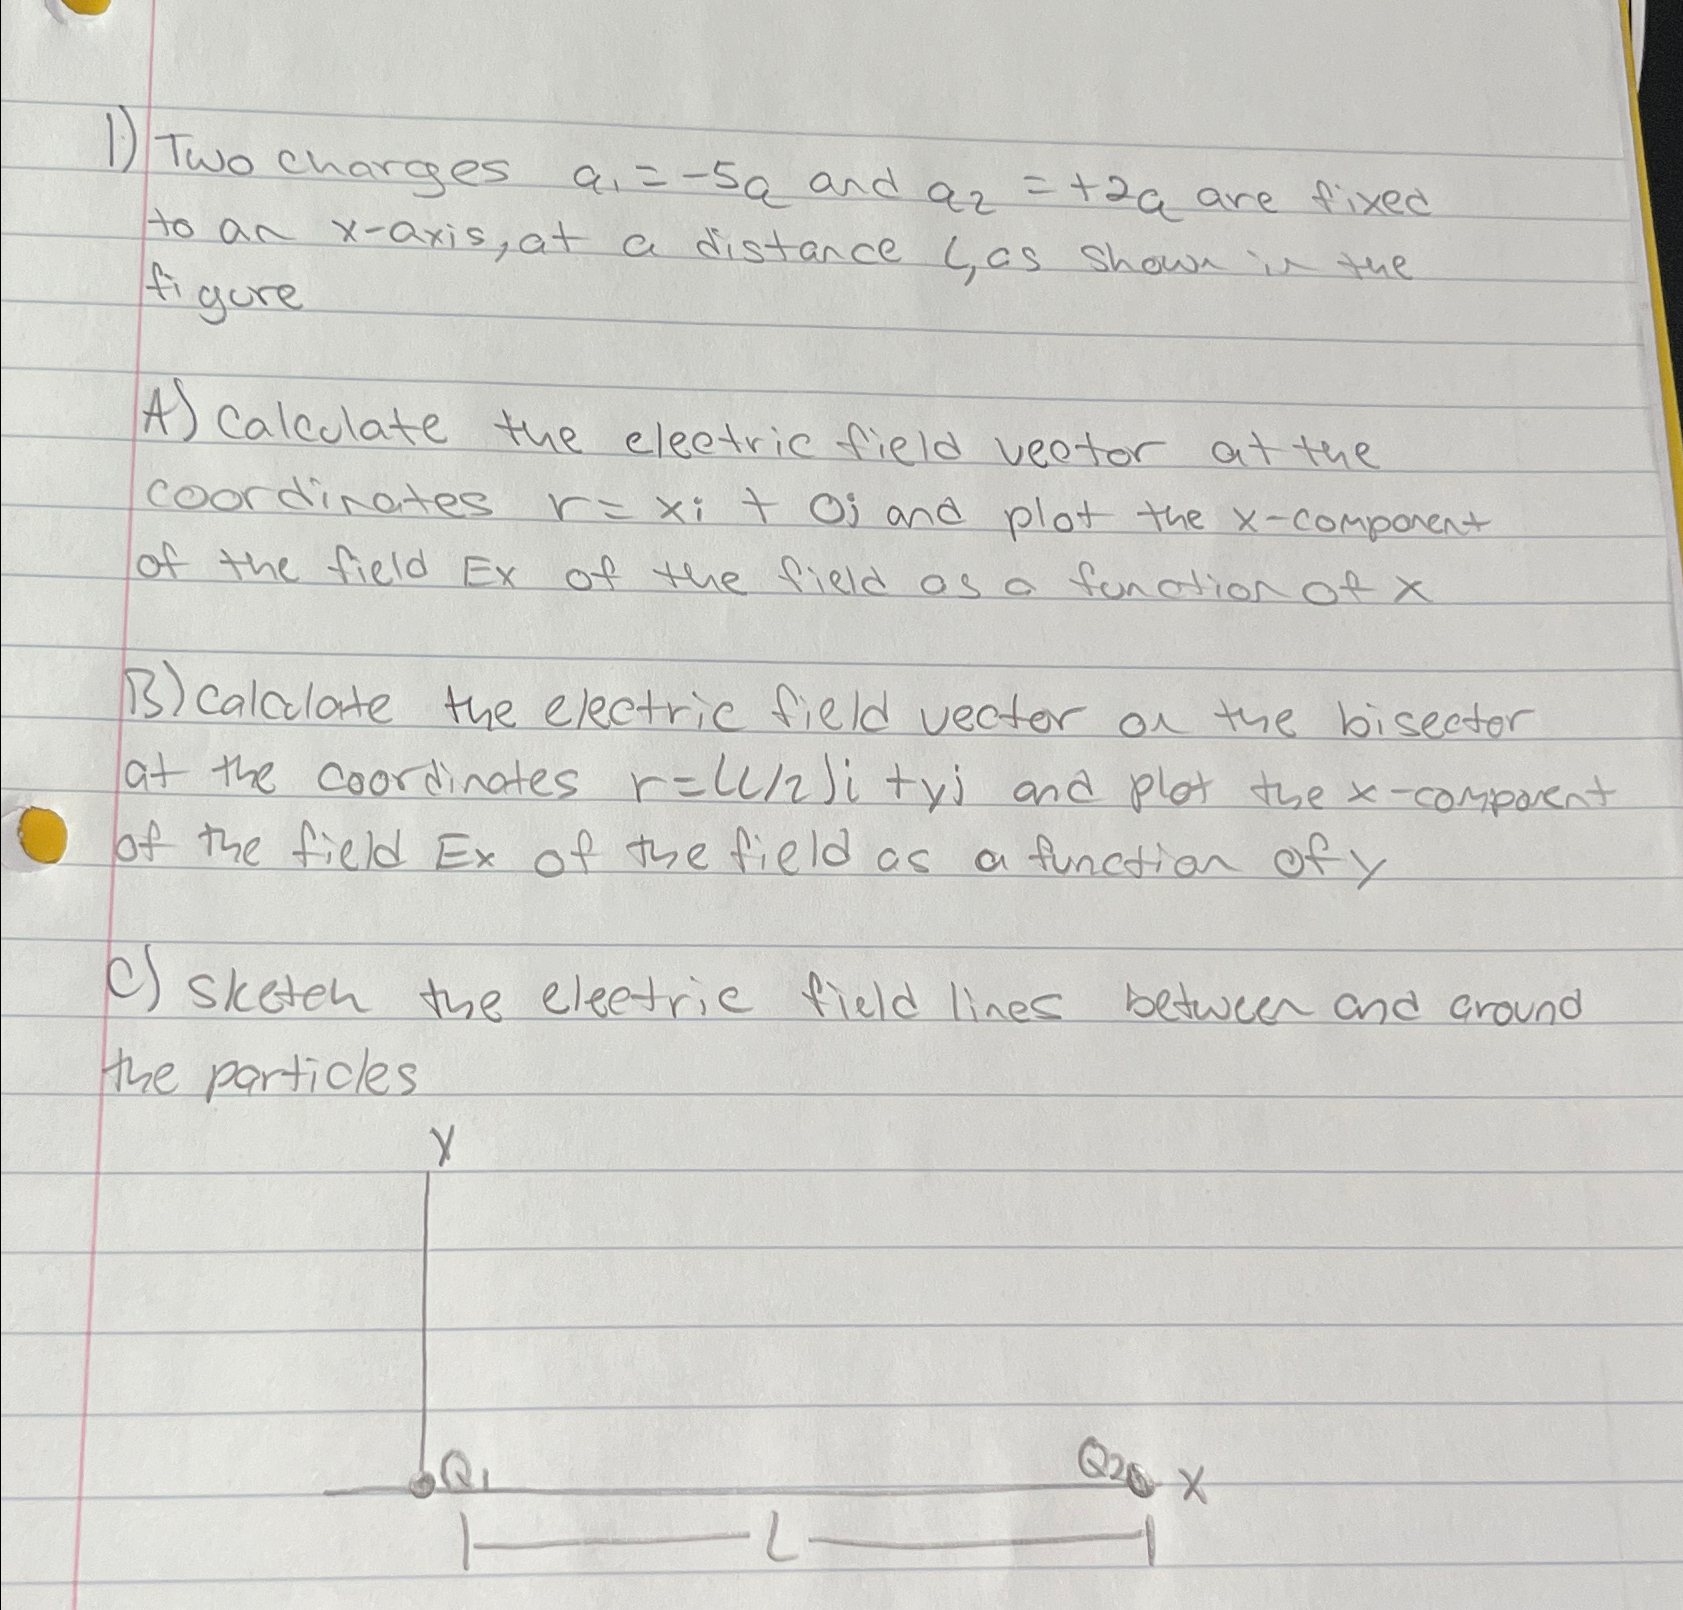 1) Two charges q1 = -5q and q2 = +2q are fixed
to an x-axis, at a distance L, as shown in the
figure
A) Calculate the electric field vector at the
coordinates r = xi + 0j and plot the x-component
of the field Ex of the field as a function of x
B) calculate the electric field vector on the bisector
at the coordinates r = (L/2)i + yj and plot the x-component
of the field Ex of the field as a function of y
C) sketch the electric field lines between and around
the particles
y
Q1
Q2
x
L